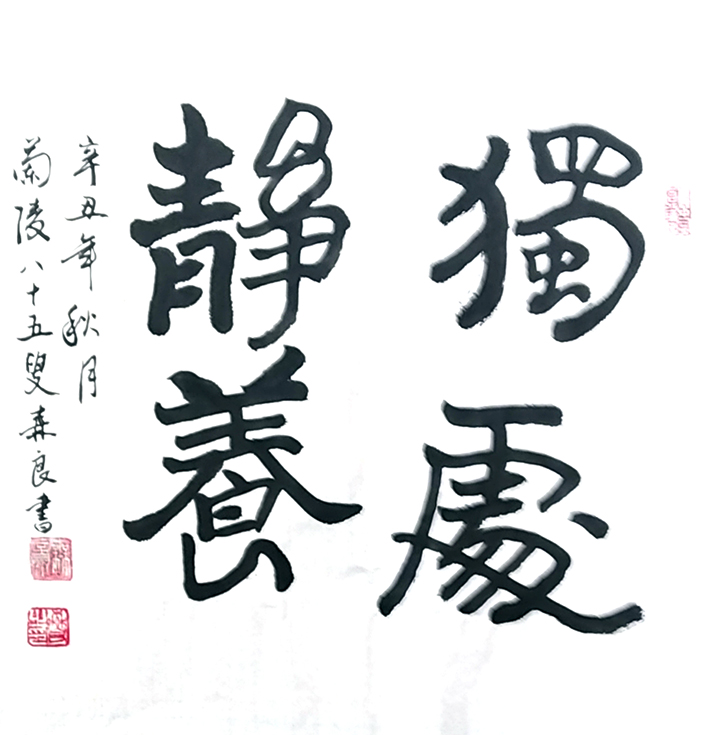 獨處
靜養
辛丑年秋月
蘭陵八十五叟森良書